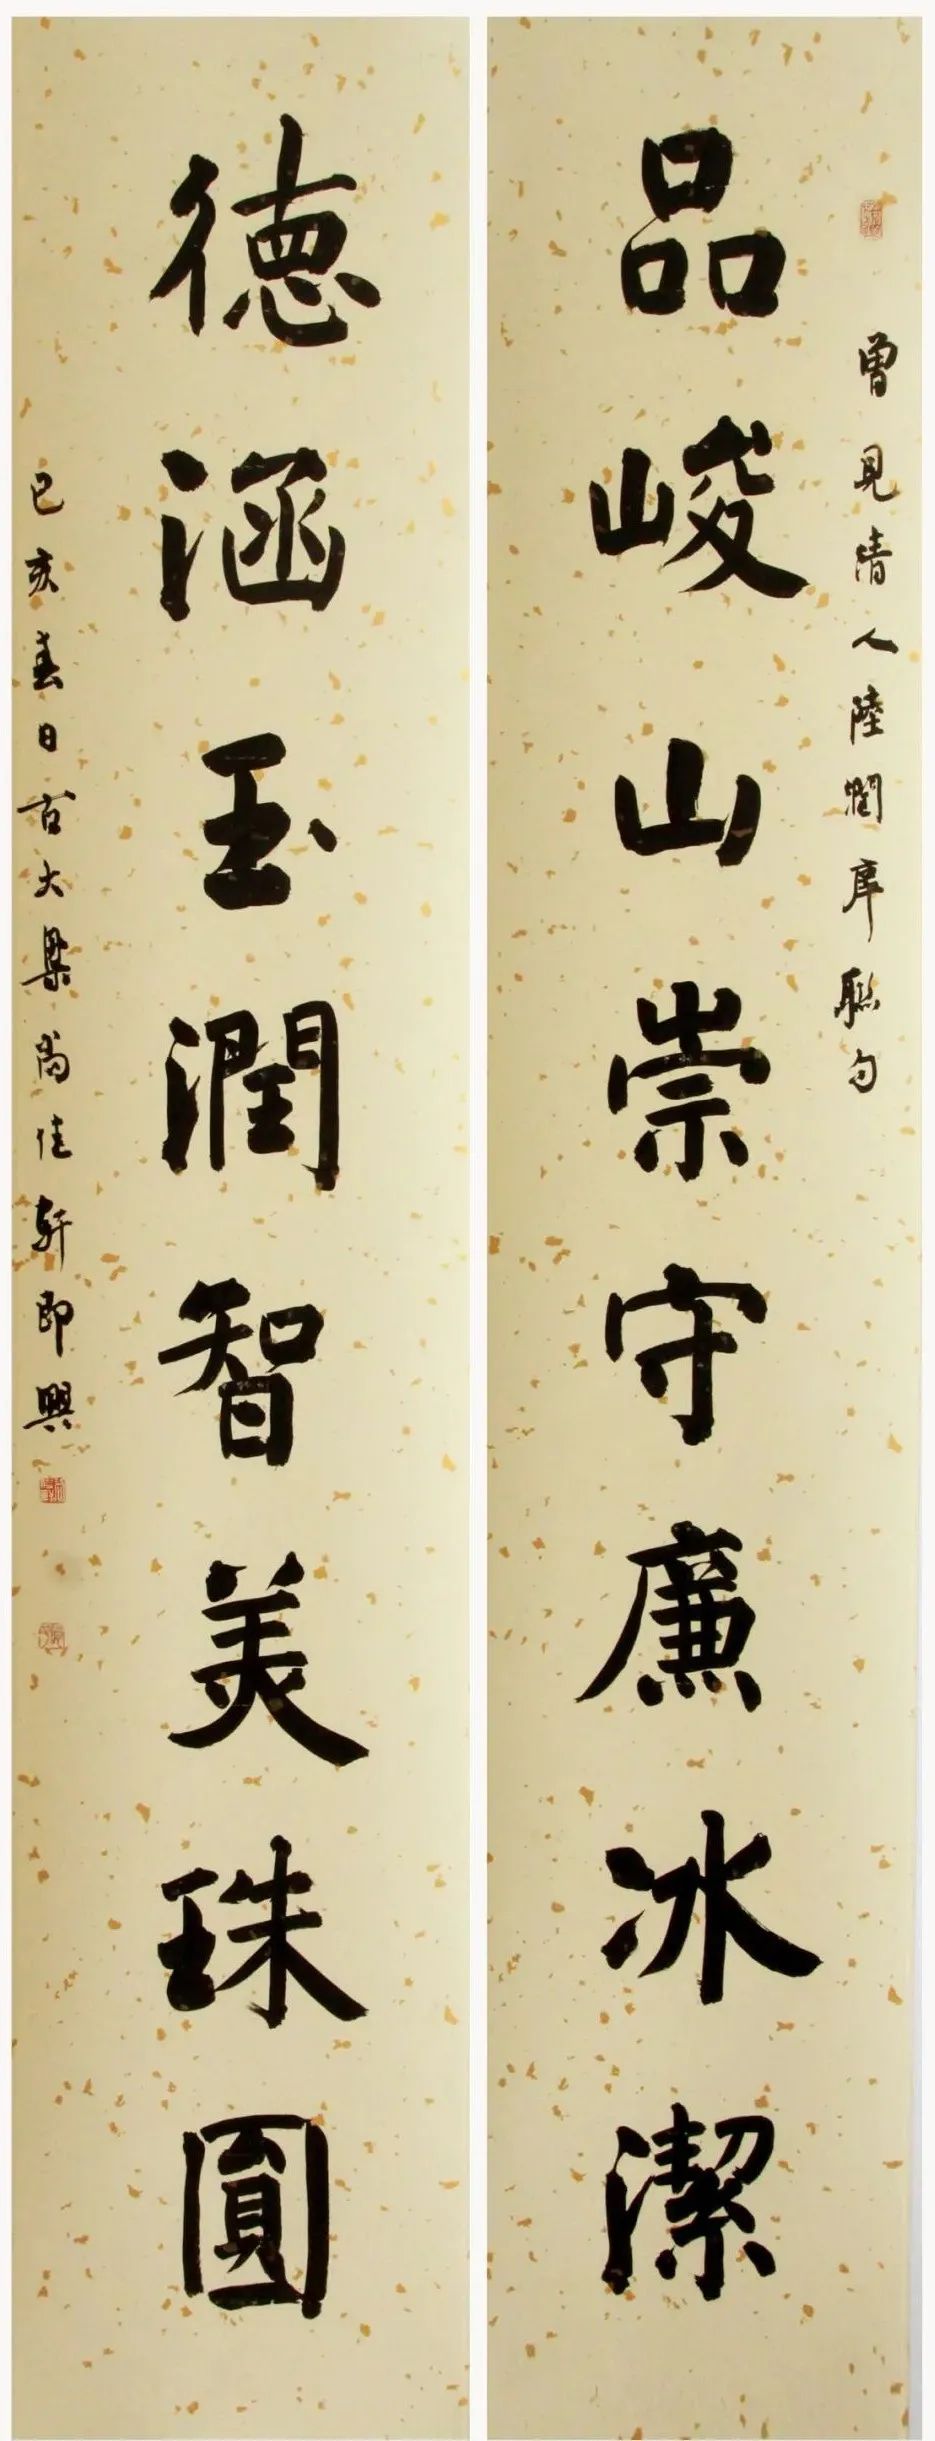 曾見清人陸潤庠聯句
品峻山崇守廉冰潔
德涵玉潤智美珠圓
己亥春日古大梁尚佳軒即興